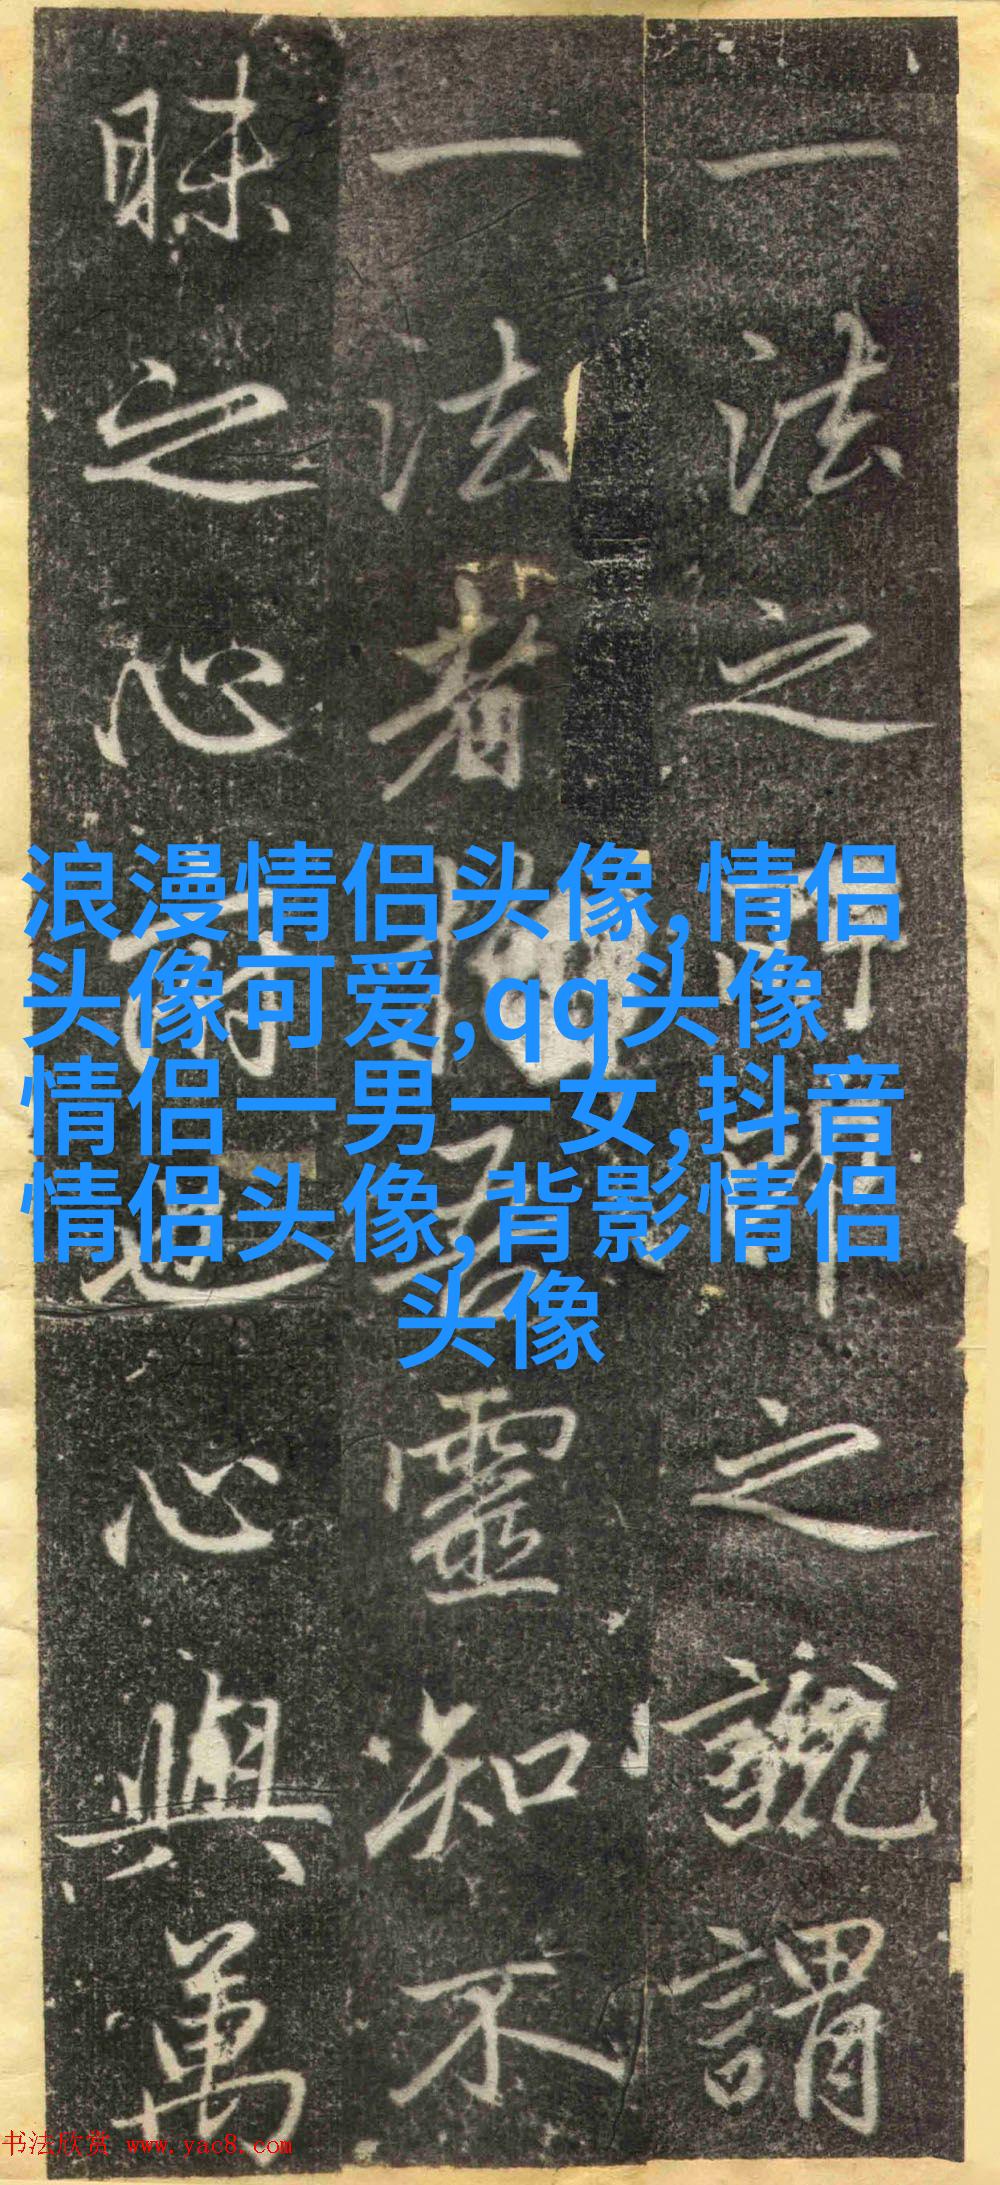 一法之之說謂
一法者靈知不
昧之心也心與萬
浪漫情侣头像,情侣
头像可爱,qq头像
情侣一男一女,抖音
情侣头像,背影情侣
头像
书法欣赏 www.yac8.com